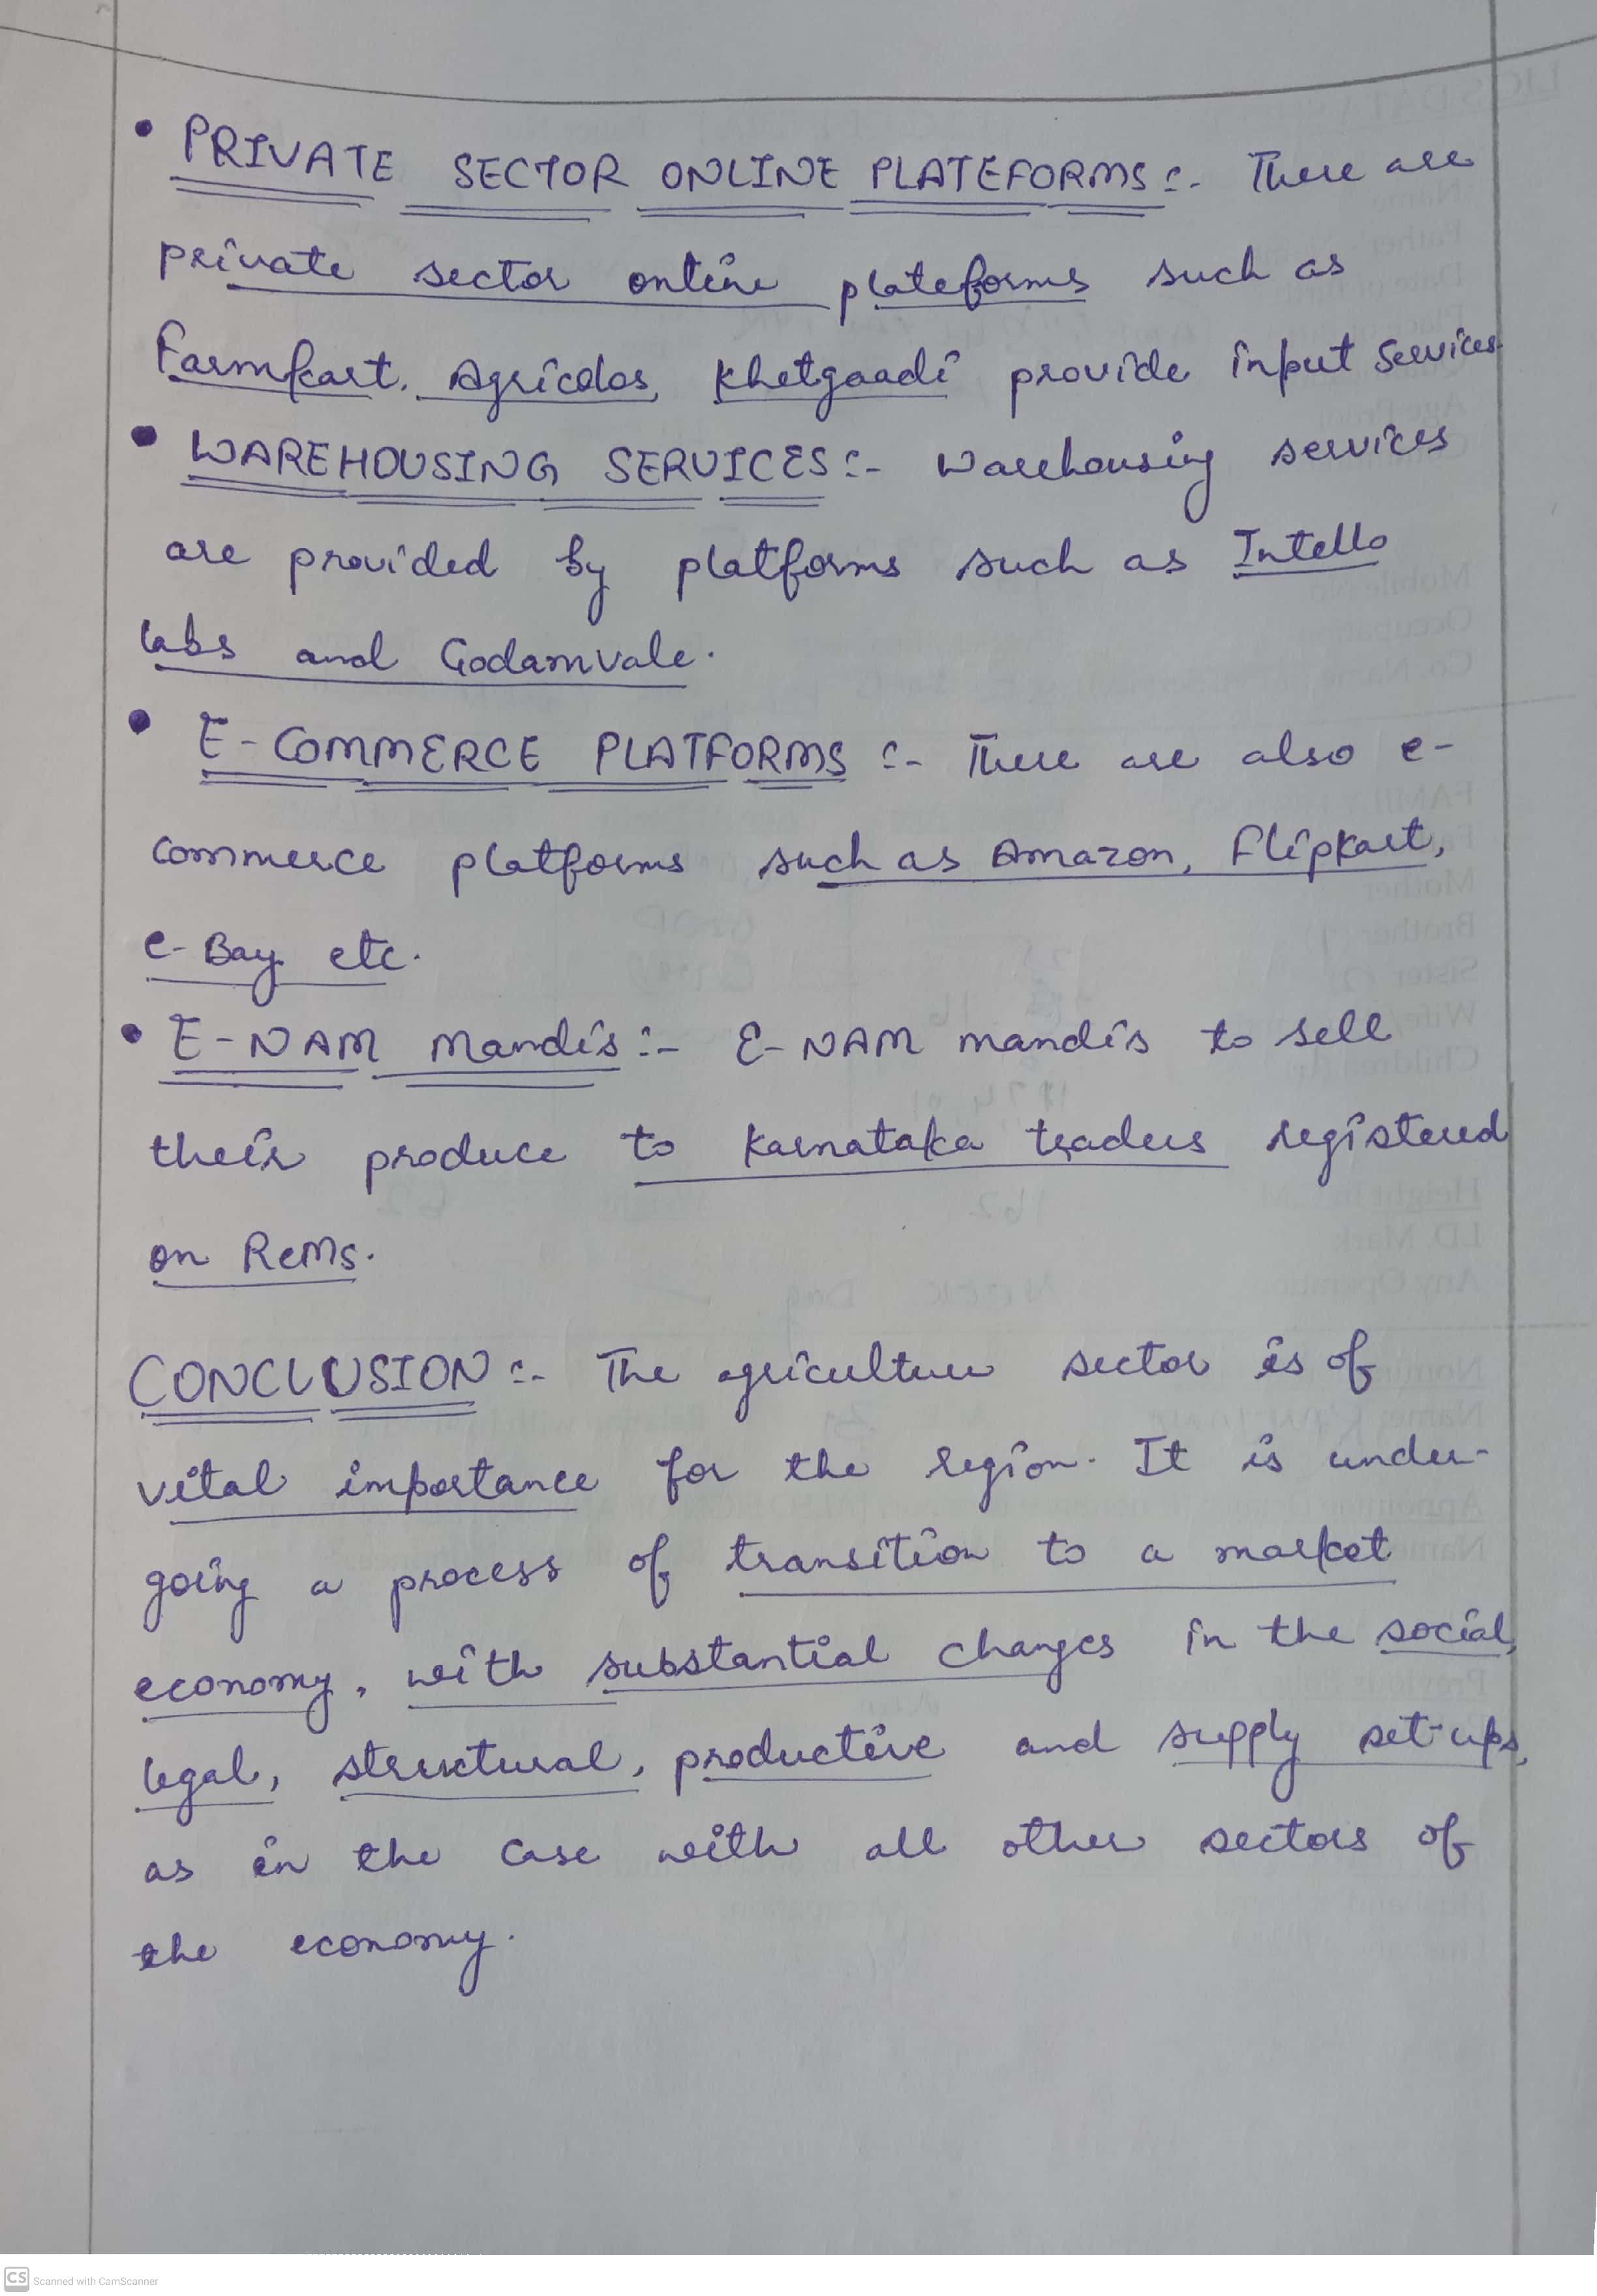 • PRIVATE SECTOR ONLINE PLATEFORMS :- There are
private sector online plateforms such as
Farmkart, Agricolos, Khetgaadi provide input services
• WAREHOUSING SERVICES :- Warehousing services
are provided by platforms such as Intello
labs and Godamvale.
• E-COMMERCE PLATFORMS :- There are also e-
commerce platforms such as Amazon, Flipkart,
e-Bay etc.
• E-NAM Mandis :- E-NAM mandis to sell
their produce to Karnataka traders registered
on ReMs.
CONCLUSION :- The agriculture sector is of
vital importance for the region. It is under-
going a process of transition to a market
economy, with substantial changes in the social,
legal, structural, productive and supply set-ups,
as in the case with all other sectors of
the economy.
CS Scanned with CamScanner